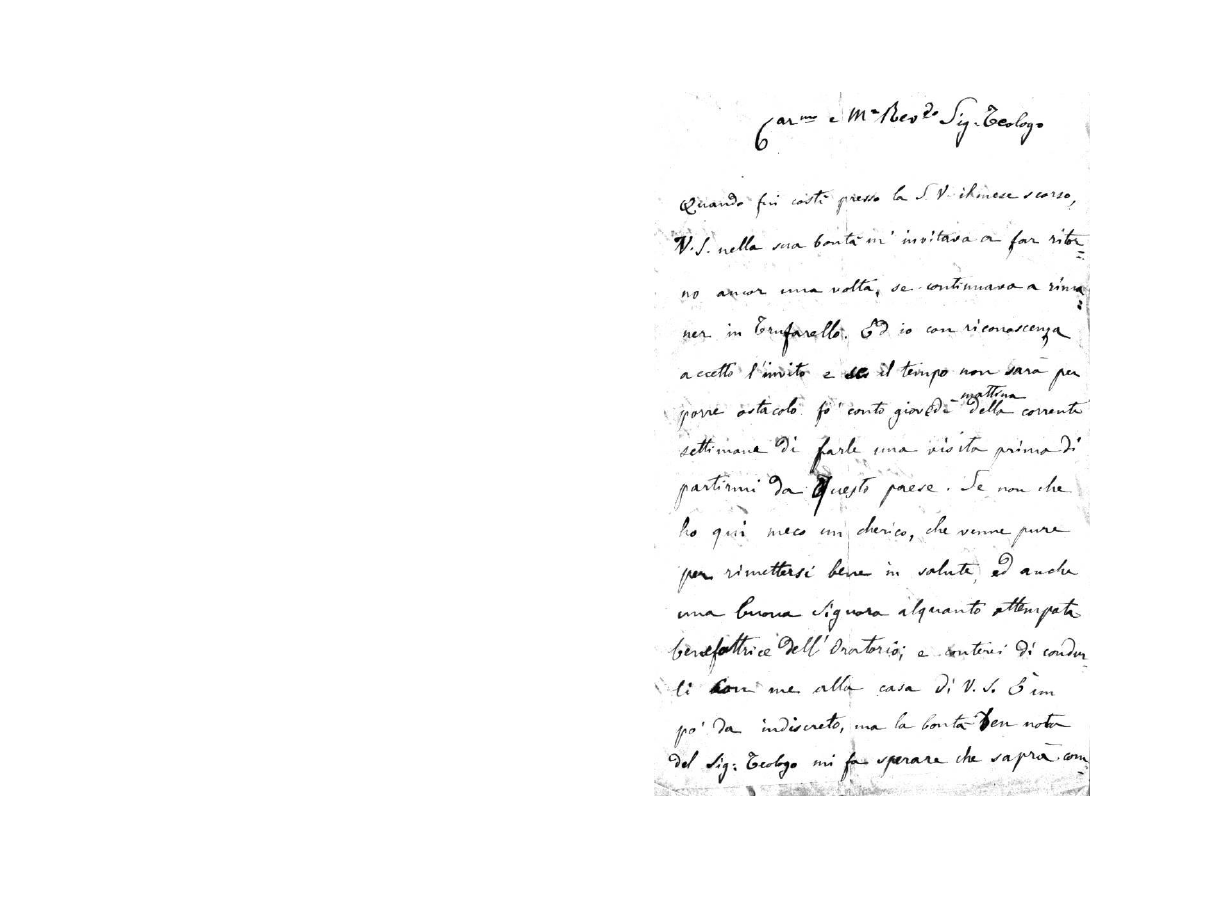 Car.mo e M.o Rev.do Sig. Teologo
Quando fui costì presso la S. V. il mese scorso,
V. S. nella sua bontà m' invitava a far ritor=
no ancor una volta, se continuava a rima=
ner in Trufarello. Ed io con riconoscenza
accetto l'invito e se il tempo non sarà per
porre ostacolo fo' conto giovedì mattina della corrente
settimana di farle una visita prima di
partirmi da questo paese. Se non che
ho qui meco un cherico, che venne pure
per rimettersi bene in salute, ed anche
una buona Signora alquanto attempata
benefattrice dell' Oratorio; e conterei di condur
li con me alla casa di V. S. È un
po' da indiscreto, ma la bontà ben nota
del Sig: Teologo mi fa sperare che saprà com=